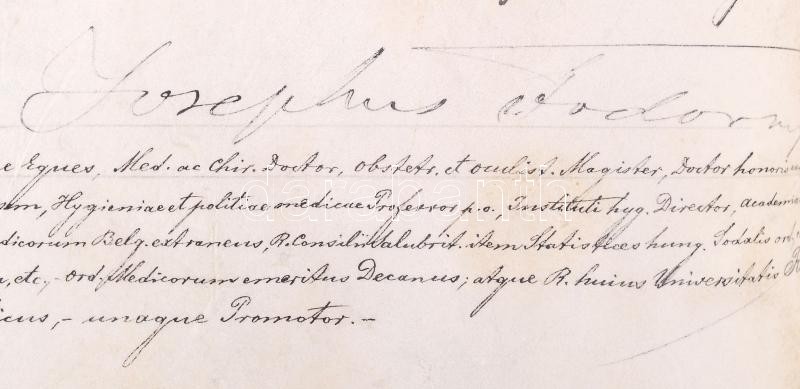 Josephus Fodor
e Eques, Med. ac Chir. Doctor, obstetr. et oculist. Magister, Doctor honoris
sem, Hygieniae et politiae medicae Professor p. o., Instituti hyg. Director, academi
dicorum Belg. extraneus, R. Consilii Salubrit. item Statistices hung. Sodalis ord.
, etc., - ord. Medicorum emeritus Decanus; atque R. huius Universitatis R
icus, - unaque Promotor. -